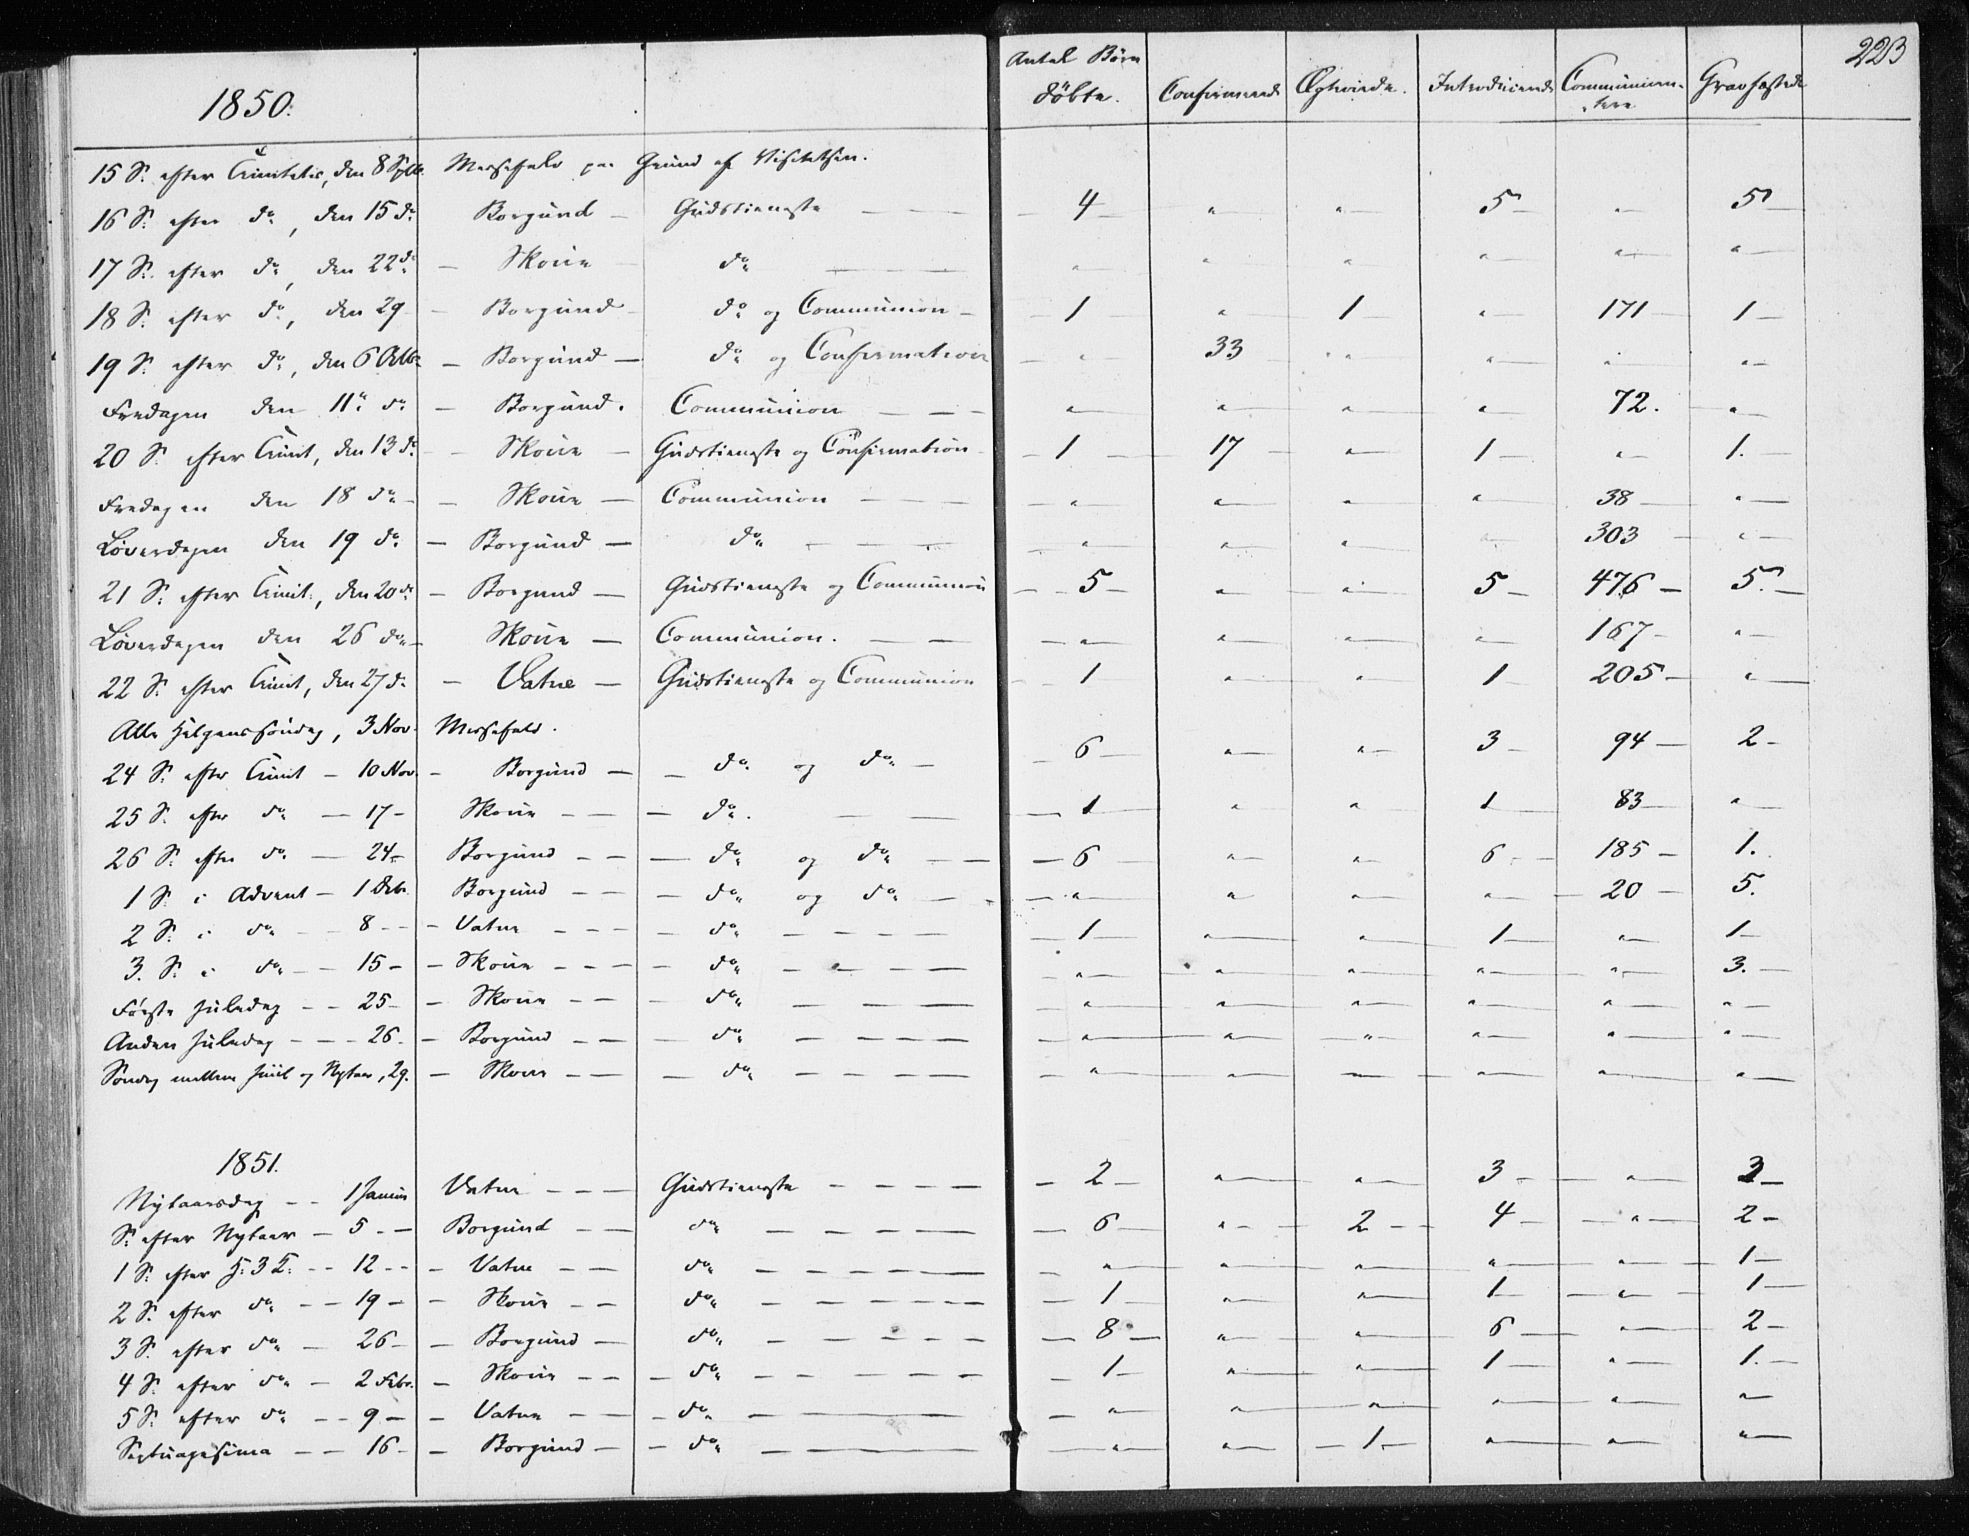 223
1850. Antal Børn døbte. Confirmerede Ægteviede. Introducerede Communicentere Gravfæstede
15 S. efter Trinitatis, den 8 Sptb. Messefald paa Grund af Visitatsen.
16 S. efter do, den 15 do Borgund – Gudstieneste – – – 4 – " " 5 – " 5 –
17 S. efter do, den 22 do – Skoue – do – – " " " " " "
18 S. efter do, den 29 – Borgund – do og Communion – 1 – " 1 – " 171 – 1 –
19 S. efter do, den 6 Octb. – Borgund – do og Confirmation " 33 " " " "
Fredagen den 11te do – Borgund. Communion – – – " " " " 72. "
20 S. efter Trinit, den 13 do – Skoue – Gudstieneste og Confirmation – 1 – 17 – " 1 – " 1. –
Fredagen den 18 do – – Skoue – Communion – – – " " " " 38 – "
Løverdagen den 19 do – Borgund – do – – – " " " " 303 "
21 S. efter Trinit:, den 20 do – Borgund – Gudstieneste og Communion – 5 – " " 5 – 476 – 5. –
Løverdagen den 26 do – Skoue – Communion. – – " " " " 167 – "
22 S. efter Trinit, den 27 do – Vatne – Gudstieneste og Communion – 1 " " 1 – 205 – "
Alle Helgenssøndag, 3 Nov. Messefald.
24 S. efter Trinit – 10 Nov. – Borgund – – do og do – – 6 – " " 3 – 94 – 2 –
25 S. efter do – 17 – Skoue – – – do. – – – 1 – " " 1 – 83 – "
26 S. efter do – 24 – Borgund – – – do og do – – – 6 – " " 6 – 185 – 1.
1 S. i Advent – 1 Debr. Borgund – – – do og do – – " " " " 20 – 5.
2 S. i do – – 8 – – – Vatne – – – – do – – – – – 1 – " " 1 – " 1 –
3. S. i do – – 15 – – Skoue – – – – do – – – – " " " " " 3. –
Første Juledag – – 25 – – Skoue – – – do – – – – " " " " " "
Anden Juledag – – – 26. – Borgund – – – do – – – – " " " " " "
Søndag mellem Juul og Nytaar, 29. – Skoue – – – do – – – – " " " " " "
1851.
Nytaarsdag – – 1 Januar Vatne – – – Gudstieneste – – – – – 2 – " " 3 – " 3 –
S. efter Nytaar – 5 – – Borgund – – do – – – – – 6 – " 2 – – 4 – " 2 –
1 S. efter H. 3 K. – – 12 – – – Vatne – – do – – – – – " " " " " 1 –
2 S. efter do – – 19 – – Skoue – – do – – – – – – 1 – " " 1 – " 1 –
3 S. efter do – 26 – – Borgund – do – – – – – – 8 – " " 6 – " 2 –
4 S. efter do – 2 Febr. – Skoue – – – do – – – – – – 1 – " " 1 – " 1. –
5 S. efter do – – 9 – – Vatne – – – do – – – – " " " " " "
Septuagesima – – 16 – – Borgund – – do – – – " " – 1 – " " "